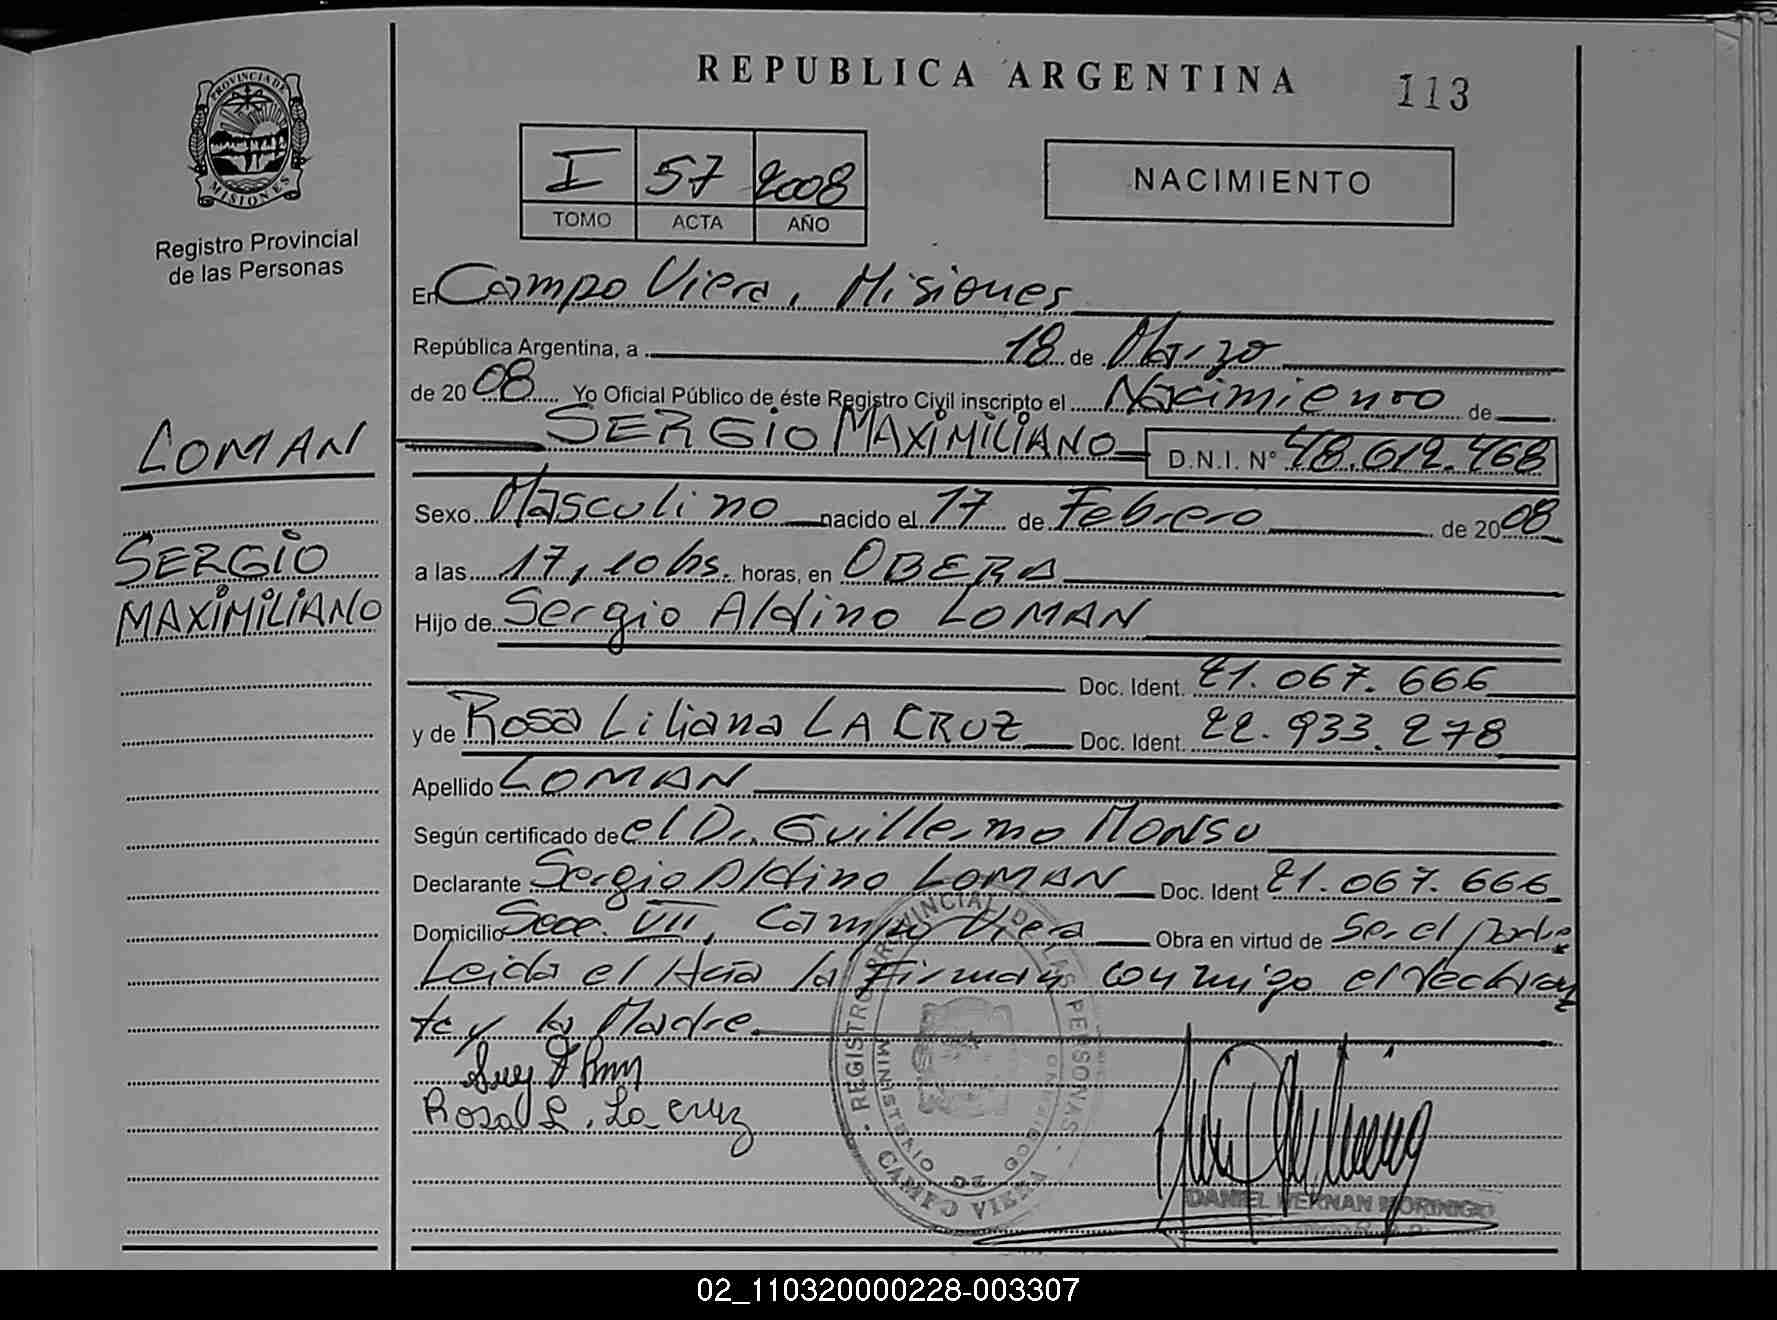 REPUBLICA ARGENTINA
113
PROVINCIA DE
MISIONES
Registro Provincial
de las Personas
I 57 2008
TOMO ACTA AÑO
NACIMIENTO
En Campo Viera, Misiones
República Argentina, a 18 de Marzo
de 2008 Yo Oficial Público de éste Registro Civil inscripto el Nacimiento de
SERGIO MAXIMILIANO D.N.I. N° 48.612.468
LOMAN
SERGIO
MAXIMILIANO
Sexo Masculino nacido el 17 de Febrero de 2008
a las 17,10 hs. horas, en OBERA
Hijo de Sergio Aldino LOMAN
Doc. Ident. 21.067.666
y de Rosa Liliana LA CRUZ Doc. Ident. 22.933.278
Apellido LOMAN
Según certificado de el Dr. Guillermo MONSU
Declarante Sergio Aldino LOMAN Doc. Ident 21.067.666
Domicilio Secc. VII, Campo Viera Obra en virtud de Ser el padre
Leida el Acta la Firman conmigo el declaran
te y la Madre
Rosa L. La cruz
REGISTRO PROVINCIAL DE LAS PERSONAS
MINISTERIO DE GOBIERNO
CAMPO VIERA
DANIEL HERNAN MORINIGO
02_110320000228-003307